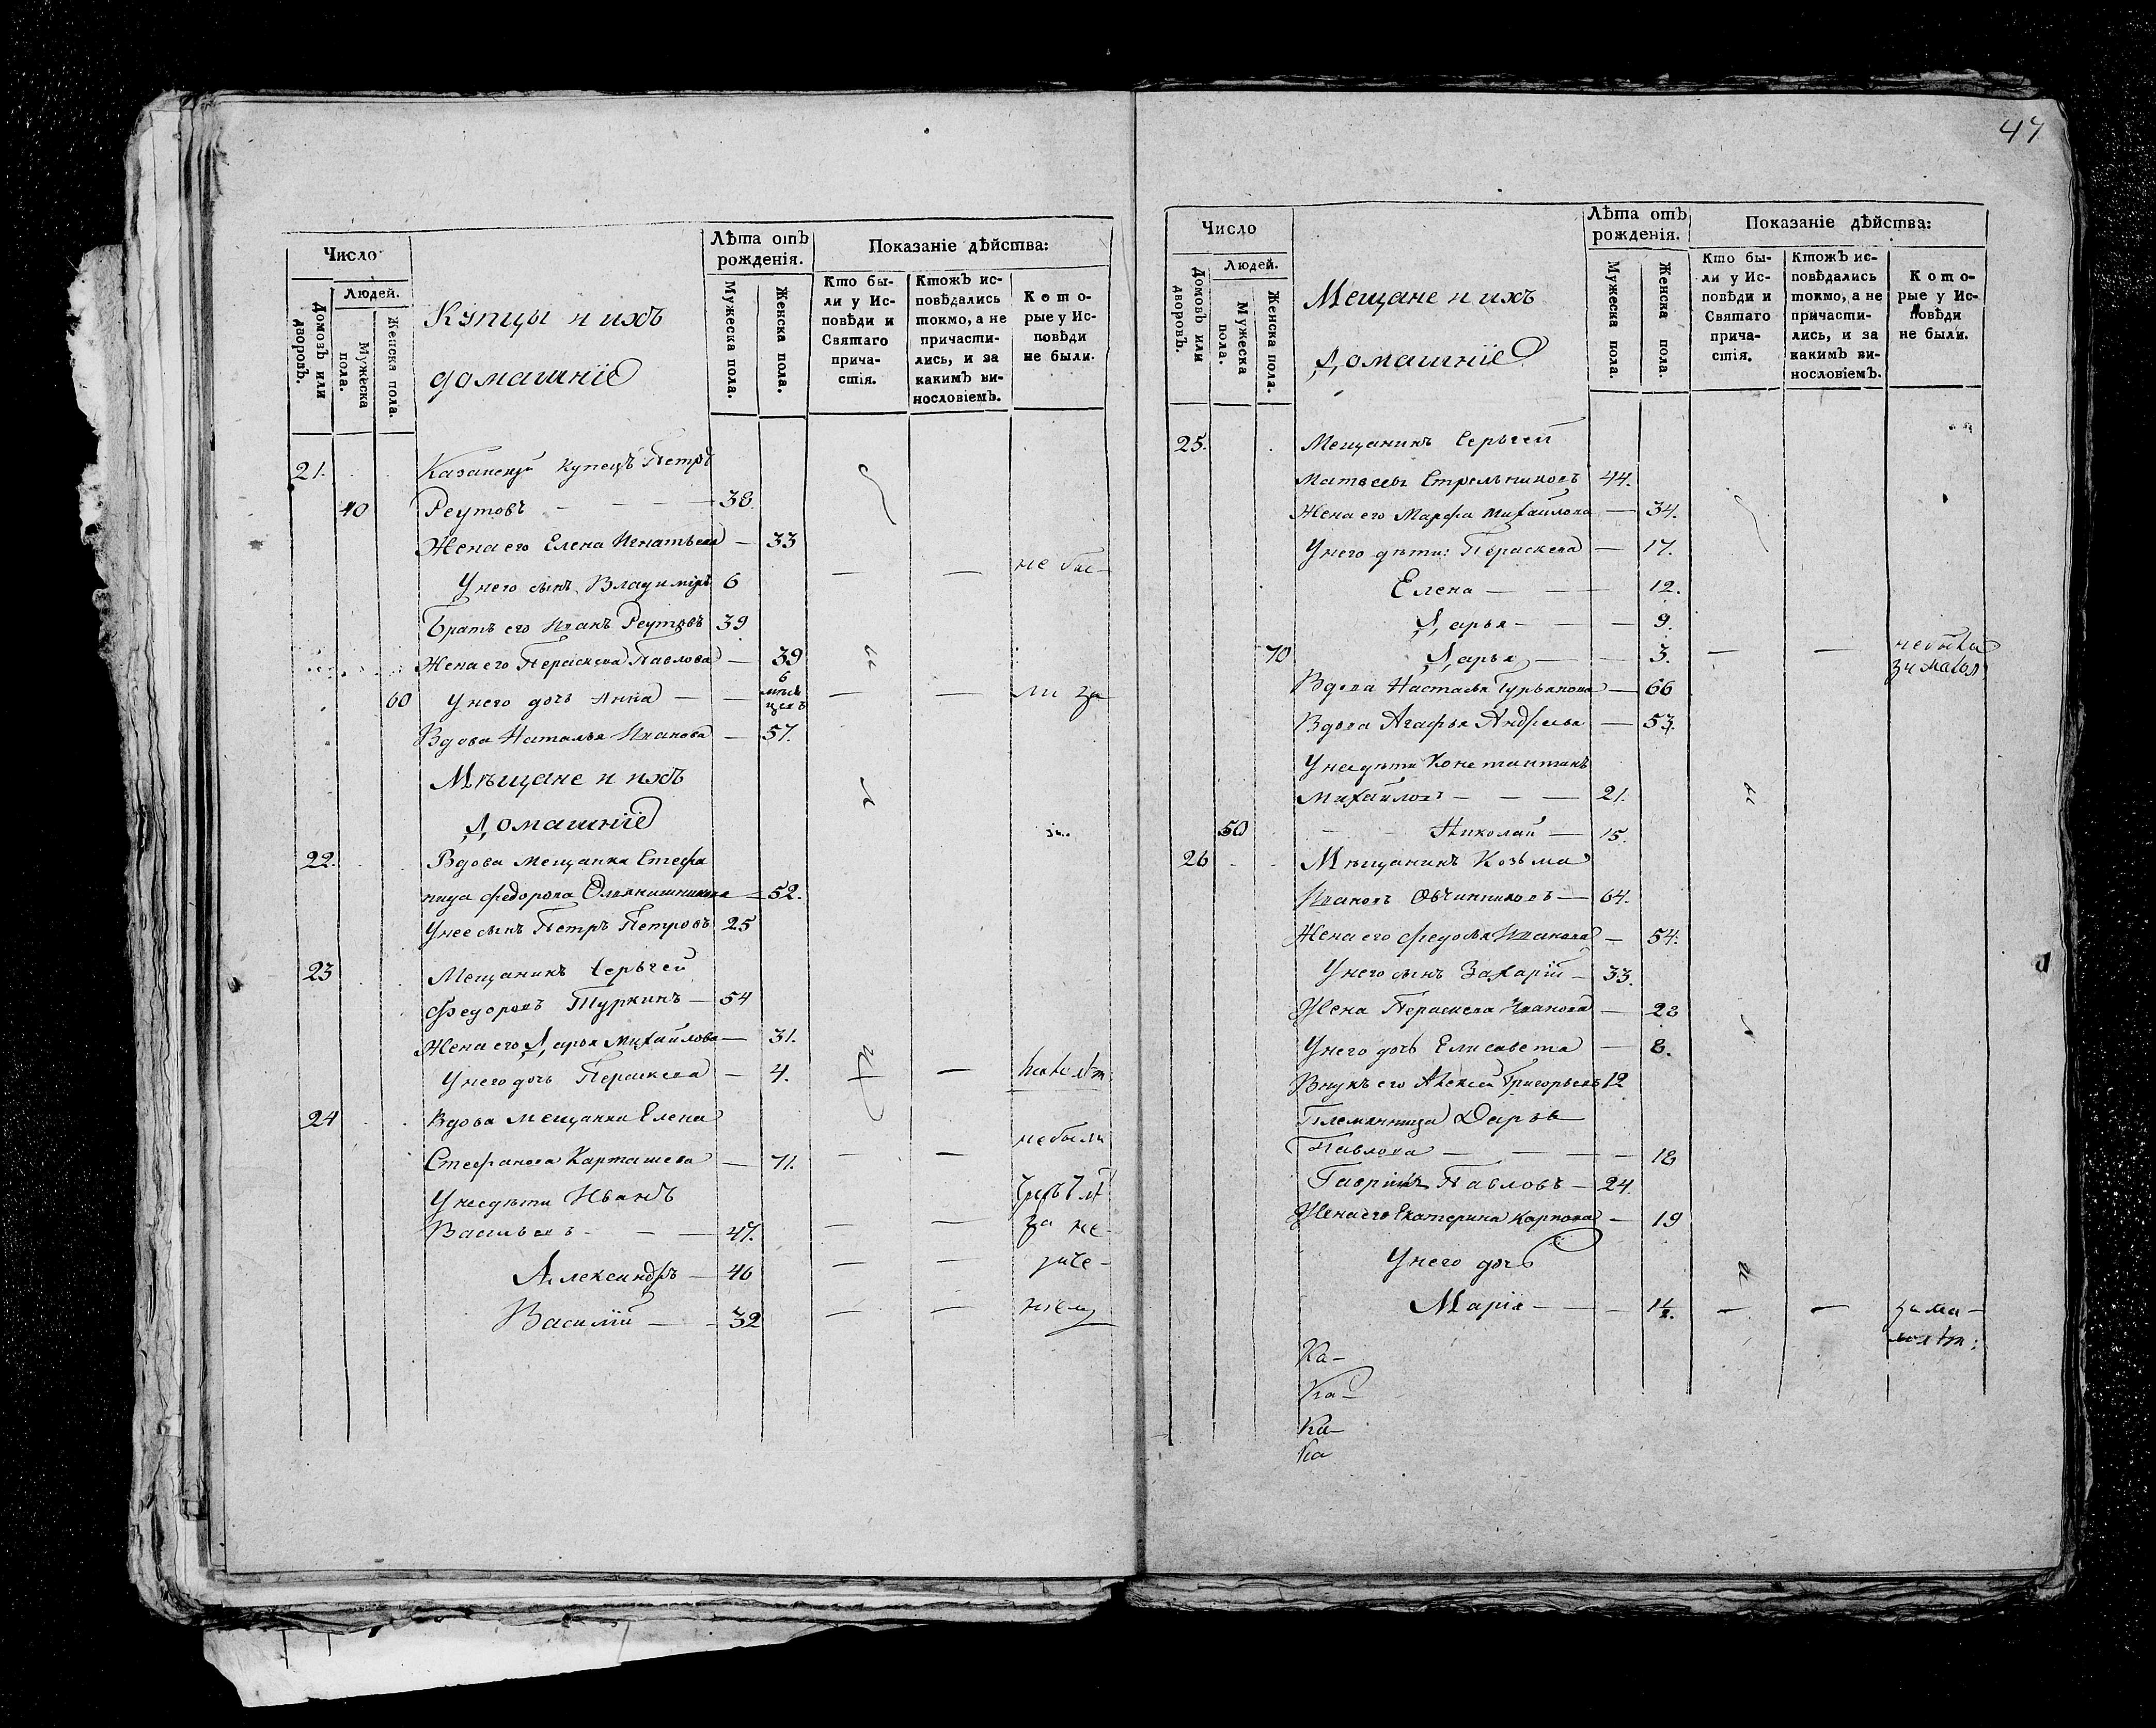 Число
Людей.
Домовъ или дворовъ.
Мужеска пола.
Женска пола.
Купцы и ихъ
домашніе
Лѣта отъ рожденія.
Мужеска пола.
Женска пола.
Показаніе дѣйства:
Кто бы-
ли у Ис-
повѣди и
Святаго
прича-
стія.
Ктожъ ис-
повѣдались
токмо, а не
причасти-
лись, и за
какимъ ви-
нословіемъ.
Кото-
рые у Ис-
повѣди
не были.
21. Казанскій купецъ Петръ
40 Реутовъ — — — 38
Жена его Елена Игнатьева — 33
У него сынъ Владиміръ 6 — — не бы-
Братъ его Иванъ Реутовъ 39
Жена его Параскева Павлова — 39
60 У него дочь Анна — — 6 мѣсяцевъ — — ли за
Вдова Наталья Иванова — 57.
Мѣщане и ихъ
Домашніе
22. Вдова мещанка Стефа
нида Федорова — 52.
У нее сынъ Петръ Петровъ 25
23 Мещанинъ Сергей
Федоровъ Туркинъ — 54
Жена его Дарья Михайлова — 31.
У него дочь Параскева — 4. —
24 Вдова мещанка Елена
Стефанова Карташева — 71. — — не были
У нее дѣти Иванъ
Васильевъ — — — 47. — — за не-
Александръ — 46 — —
Василій — — 32 — —
47
Число
Людей.
Домовъ или дворовъ.
Мужеска пола.
Женска пола.
Мещане и ихъ
Домашніе
Лѣта отъ рожденія.
Мужеска пола.
Женска пола.
Показаніе дѣйства:
Кто бы-
ли у Ис-
повѣди и
Святаго
прича-
стія.
Ктожъ ис-
повѣдались
токмо, а не
причасти-
лись, и за
какимъ ви-
нословіемъ.
Кото-
рые у Ис-
повѣди
не были.
25. Мещанинъ Сергей
Матвеевъ Стрельниковъ 44.
Жена его Марфа Михайлова — 34.
У него дѣти: Параскева — 17.
Елена — — — 12.
Дарья — — — 9.
70 Дарья — — 3. — —
Вдова Настасья Гурьянова — 66
Вдова Агафья Андреева — 53.
У нее дѣти Константинъ
Михайловъ — — — 21.
50 Николай — 15.
26 Мѣщанинъ Козьма
Ивановъ Овчинниковъ — 64.
Жена его Федосья Иванова — 54.
У него сынъ Захарій — 33.
Жена Параскева Иванова — 28
У него дочь Елисавета — 8.
Внукъ его Алексей Григорьевъ 12
Племянница Дарья
Павлова — — — — 18
Гаврилъ Павловъ — 24.
Жена его Екатерина Карпова — 19
У него дочь
Марія — — — 1½. — — за ма-
лолѣт:
Ка-
Ка-
Ка-
Ка